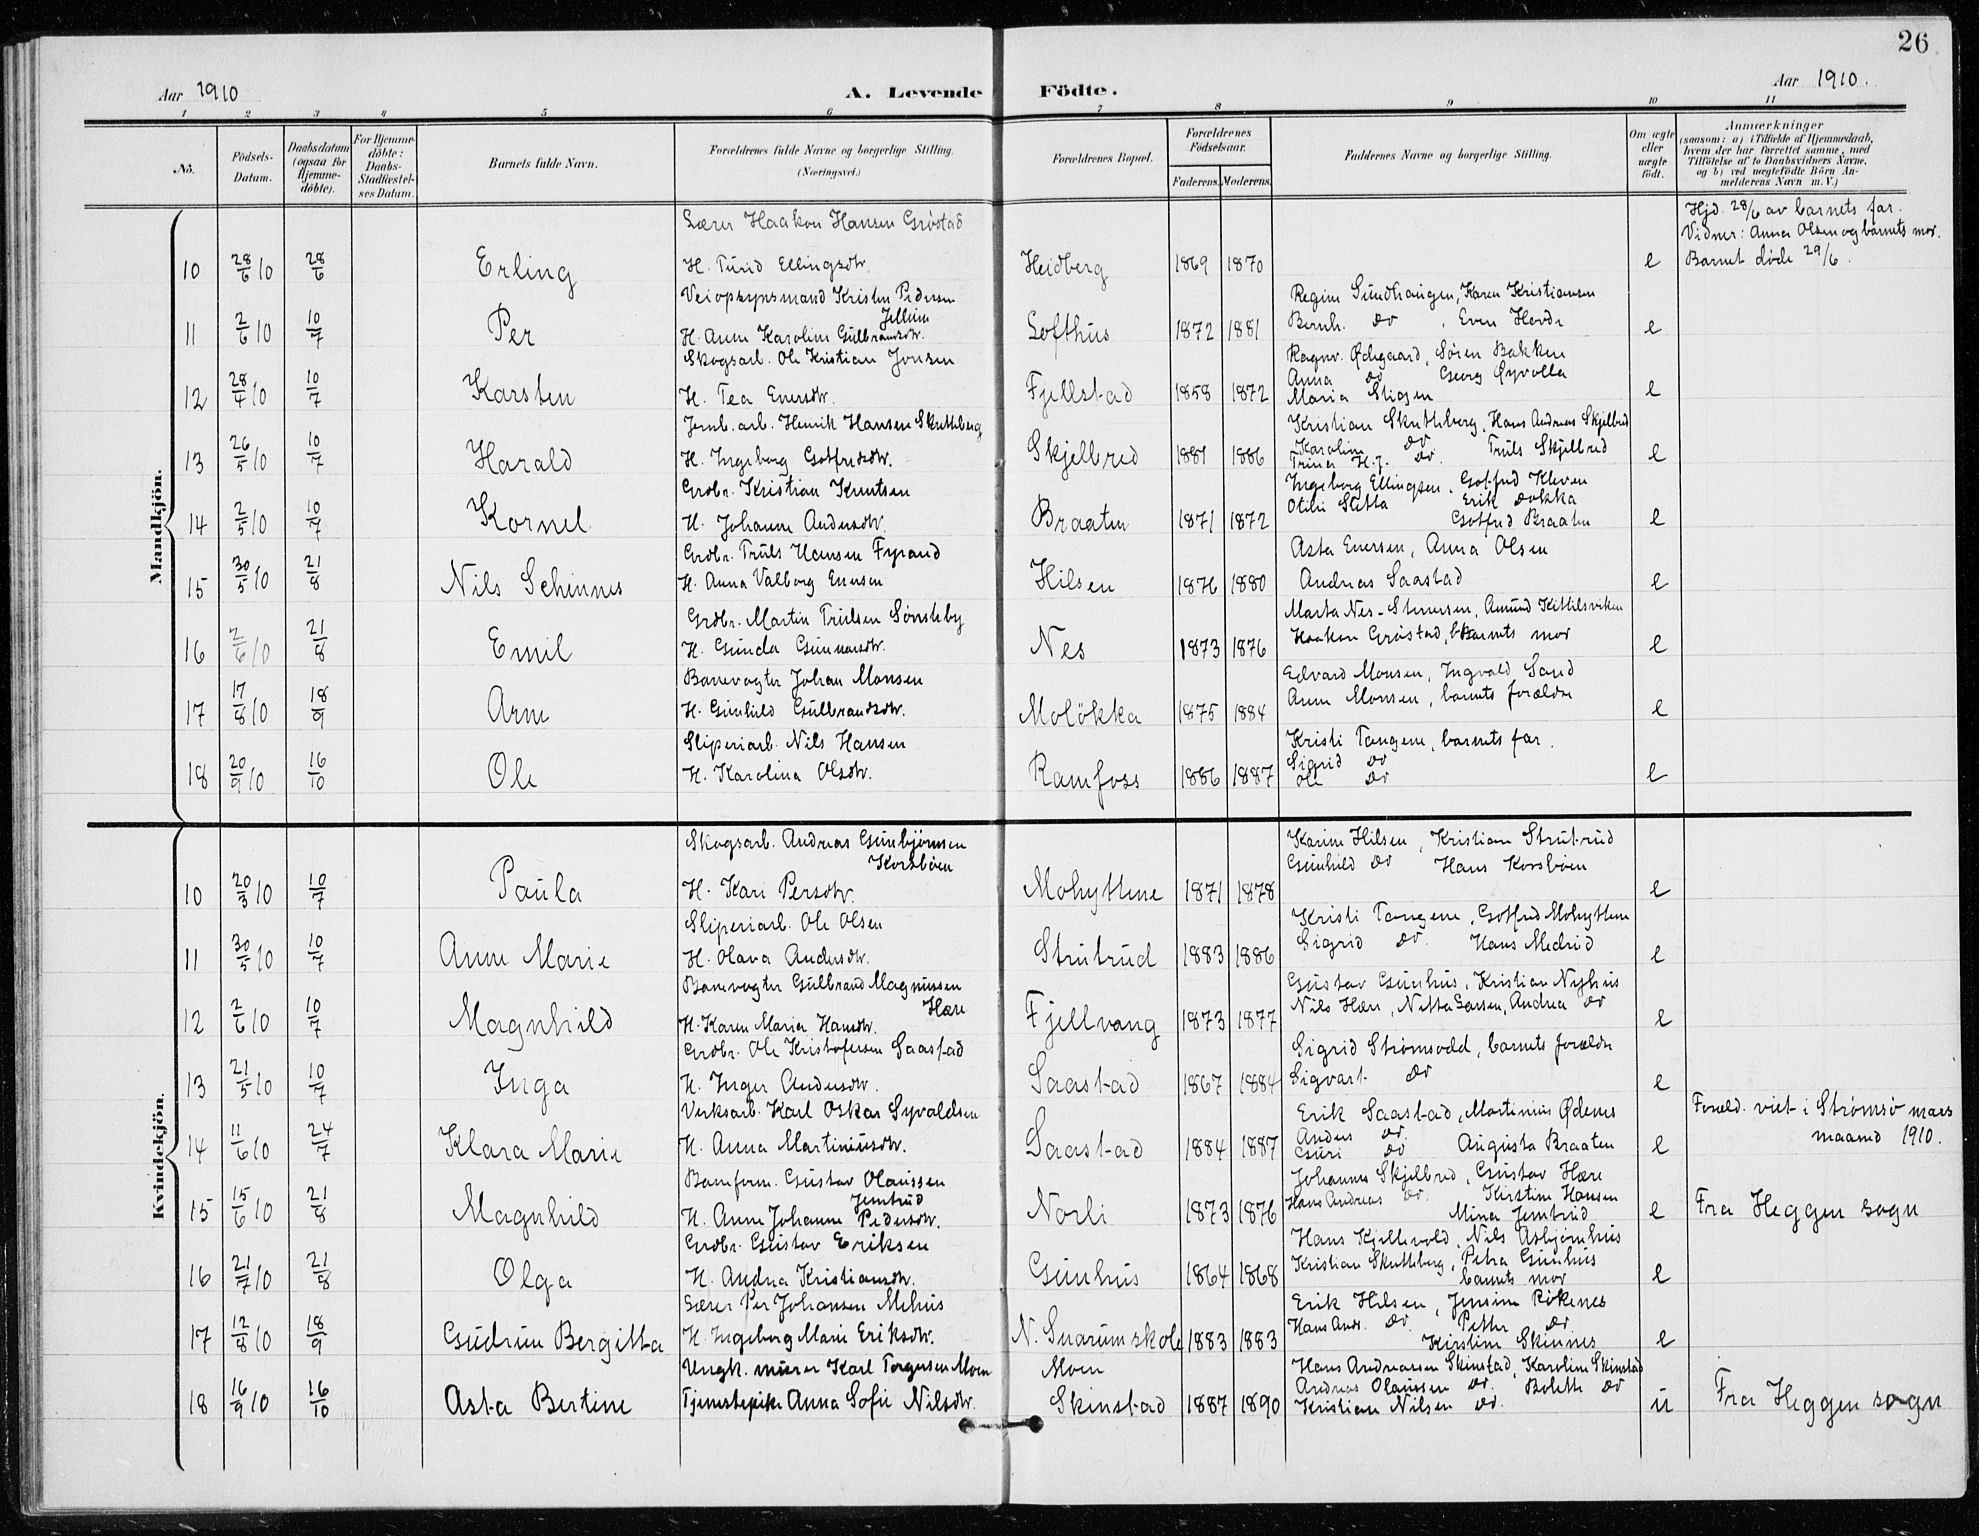 26
Aar 1910
A. Levende Födte.
Aar 1910.
1 2 3 4 5 6 7 8 9 10 11
No.
Födsels-Datum.
Daabsdatum (ogsaa for Hjemme-döbte).
For Hjemme-döbte: Daabs-Stadfæstel-ses Datum.
Barnets fulde Navn.
Forældrenes fulde Navne og borgerlige Stilling. (Næringsvei.)
Forældrenes Bopæl.
Forældrenes Födselsaar.
Faderens. Moderens.
Faddernes Navne og borgerlige Stilling.
Om ægte eller uægte födt.
Anmærkninger
(saasom: a) i Tilfælde af Hjemmedaab, hvem der har forrettet samme, med Tilföielse af to Daabsvidners Navne, og b) ved uægtefödte Börn An-melderens Navn m. V.)
Mandkjön.
Lærer Haakon Hansen Grøstad
Hjd. 28/6 av barnets far.
Vidner: Anna Olsen og barnets mor.
10 28/6 10 28/6 Erling H. Turid Ellingsdtr. Heidberg 1869 1870 e Barnet døde 29/6.
Veiopsynsmand Kristen Pedersen Jellum
Regine Sundhaugen, Karen Kristiansen
11 2/6 10 10/7 Per H. Anne Karoline Gulbransdtr. Lofthus 1872 1881 Bernh. do, Even Hovde e
Skogsarb. Ole Kristian Jonsen
Ragnv. Ødegaard, Søren Bakken
Anna do Georg Øyvolla
12 28/4 10 10/7 Karsten H. Tea Enersdtr. Fjellstad 1858 1872 Maria Stigen e
Jernb. arb. Henrik Hansen Skutteberg
Kristian Skuttleberg, Hans Andreas Skjelbred
Karoline do Truls Skjelbred
13 26/5 10 10/7 Harald H. Ingeborg Gotfredsdtr. Skjelbred 1881 1886 Trina H.J. do. e
Grdbr. Kristian Knutsen
Ingeborg Ellingsen, Gotfred Kleven
Otilie Sletta Erik Dokka
14 2/5 10 10/7 Kornel H. Johanne Andersdtr. Braaten 1871 1872 Gotfred Braaten e
Grdbr. Truls Hansen Fyrand
Asta Enersen, Anna Olsen
15 30/5 10 21/8 Nils Schinnes H. Anna Valborg Enersen Hilsen 1876 1880 Andreas Saastad e
Grdbr. Martin Trulsen Sønsteby
Marta Nes-Stenersen, Amund Kittilsviken
16 2/6 10 21/8 Emil H. Gunda Gunnarsdtr. Nes 1873 1876 Haakon Grøstad, barnets mor e
Banevogter Johan Monsen
Edvard Monsen, Ingvald Sand
17 17/8 10 18/9 Arne H. Gunhild Gulbrandsdtr. Molökka 1875 1884 Anne Monsen, barnets forældre e
Sliperiarb. Nils Hansen
Kristi Tangene, barnets far.
Sigrid do
18 20/9 10 16/10 Ole H. Karolina Olsdtr. Ramfoss 1886 1887 Ole do e
Kvindekjön.
Skogsarb. Andreas Gunbjørnsen Korsbøen
Karine Hilsen, Kristian Strutrud
Gunhild do Hans Korsbøen
10 20/3 10 10/7 Paula H. Kari Persdtr. Mohyttene 1871 1878 e
Sliperiarb. Ole Olsen
Kristi Tangene, Gotfred Mohyttene
11 30/5 10 10/7 Anne Marie H. Olava Andersdtr. Strutrud 1883 1886 Sigrid do. Hans Medrud e
Banevogter Gulbrand Magnussen Hære
Gustav Gunhus, Kristian Nyhus
Nils Hære, Netta Larsen, Andrea do
12 2/6 10 10/7 Magnhild H. Karen Maria Hansdtr. Fjellvang 1873 1877 e
Grdbr. Ole Kristofersen Saastad
Sigrid Strømsodd, barnets forældre
13 21/5 10 10/7 Inga H. Inger Andersdtr. Saastad 1867 1884 Sigvart do e
Verksarb. Karl Oskar Syvaldsen
Erik Saastad, Martinius Ødenes
Foræld. viet i Strømsø mars maaned 1910.
Anders do
14 11/6 10 24/7 Klara Marie H. Anna Martiniusdtr. Saastad 1884 1887 Guri do Augusta Braaten e
Baneform. Gustav Olaussen Jemtrud
Johannes Skjelbred, Gustav Hære
Hans Andreas do. Kirstine Hansen
15 15/6 10 21/8 Magnhild H. Anne Johanne Pedersdtr. Norli 1873 1876 Mina Jemtrud e Fra Heggen sogn
Grdbr. Gustav Eriksen
Hans Kjillevold, Nils Asbjørnhus
Kristian Skuttleberg, Petra Gunhus
16 21/7 10 21/8 Olga H. Andrea Kristiansdtr. Gunhus 1864 1868 barnets mor e
Lærer Per Johansen Mehus
Erik Hilsen, Jensine Rikenes
Hans Andr. do. Petter do.
17 12/8 10 18/9 Gudrun Bergitta H. Ingeborg Marie Eriksdtr. N. Snarum skole 1883 1883 Kirstine Skinnes e
Ungk. murer Karl Torgersen Moen Moen
Hans Andreassen Skinstad, Karoline Skinstad
Andreas Olaussen do. Bolette do
18 16/9 10 16/10 Asta Bertine Tjenestepike Anna Sofie Nilsdtr. Skinstad 1887 1890 Kristian Nilsen do. u Fra Heggen sogn